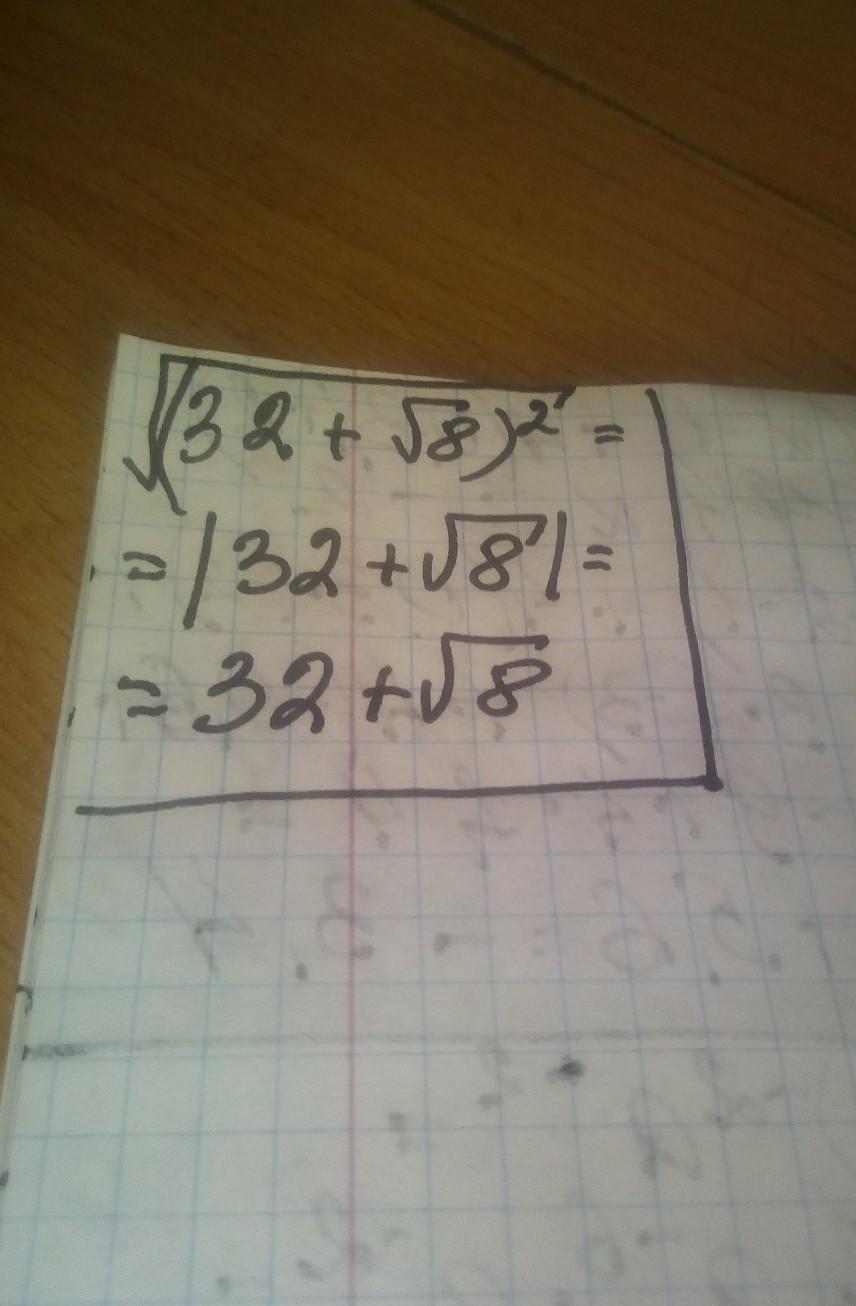 √(32 + √8)² =
= |32 + √8| =
= 32 + √8